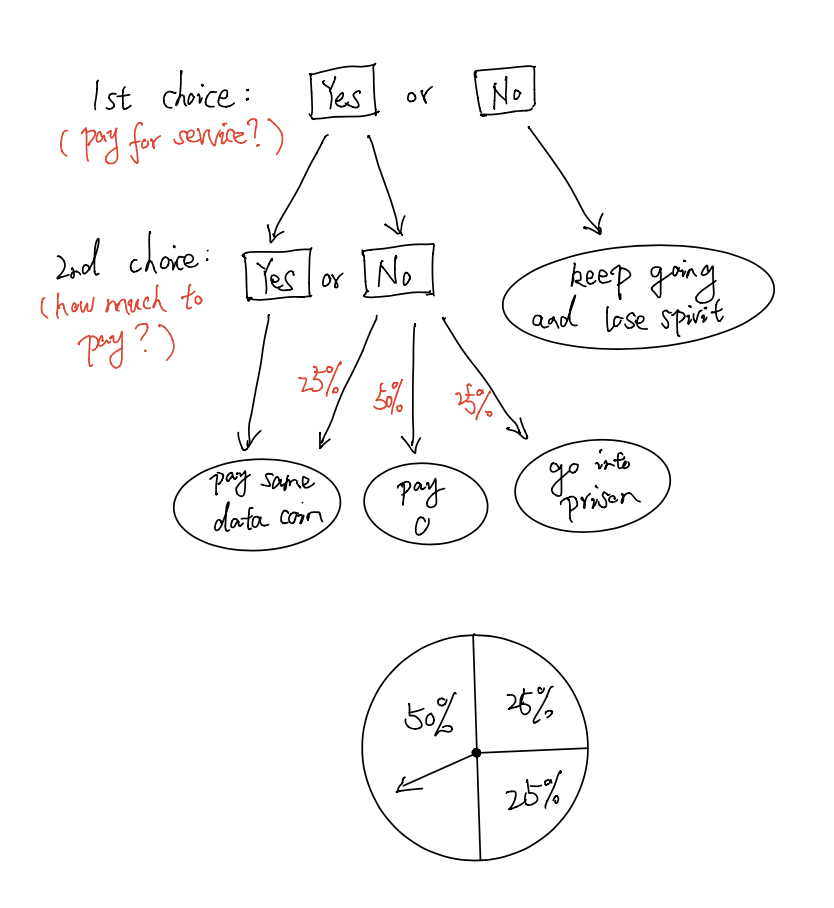 1st choice: Yes or No
(pay for service?)
2nd choice: Yes or No
(how much to
pay?)
keep going
and lose spirit
25% 50% 25%
pay same
data coin
pay
0
go into
prison
50% 25%
25%